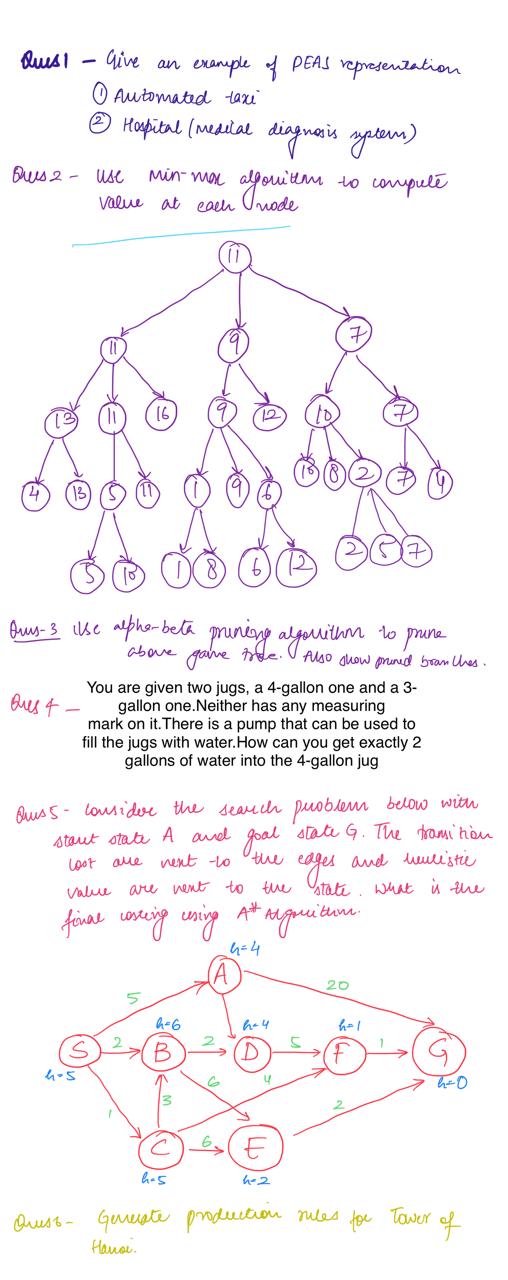 Ques1 - Give an example of PEAS representation
① Automated taxi
② Hospital (medical diagnosis system)
Ques2 - Use Min-max algorithm to compute
value at each node
11
11 9 7
13 11 16 9 12 10 7
4 13 5 11 1 9 6 10 8 2 7 4
5 10 1 8 6 12 2 5 7
Ques-3 Use alpha-beta pruning algorithm to prune
above game tree. Also show pruned branches.
Ques 4 -
You are given two jugs, a 4-gallon one and a 3-
gallon one.Neither has any measuring
mark on it.There is a pump that can be used to
fill the jugs with water.How can you get exactly 2
gallons of water into the 4-gallon jug
Ques5- Consider the search problem below with
start state A and goal state G. The transition
cost are next to the edges and heuristic
value are next to the state. What is the
final costing using A* Algorithm.
h=4
A
5 20
h=6 h=4 h=1
S 2 B 2 D 5 F 1 G
h=5 h=0
1 3 6 4 2
C 6 E
h=5 h=2
Ques6- Generate production rules for Tower of
Hanoi.